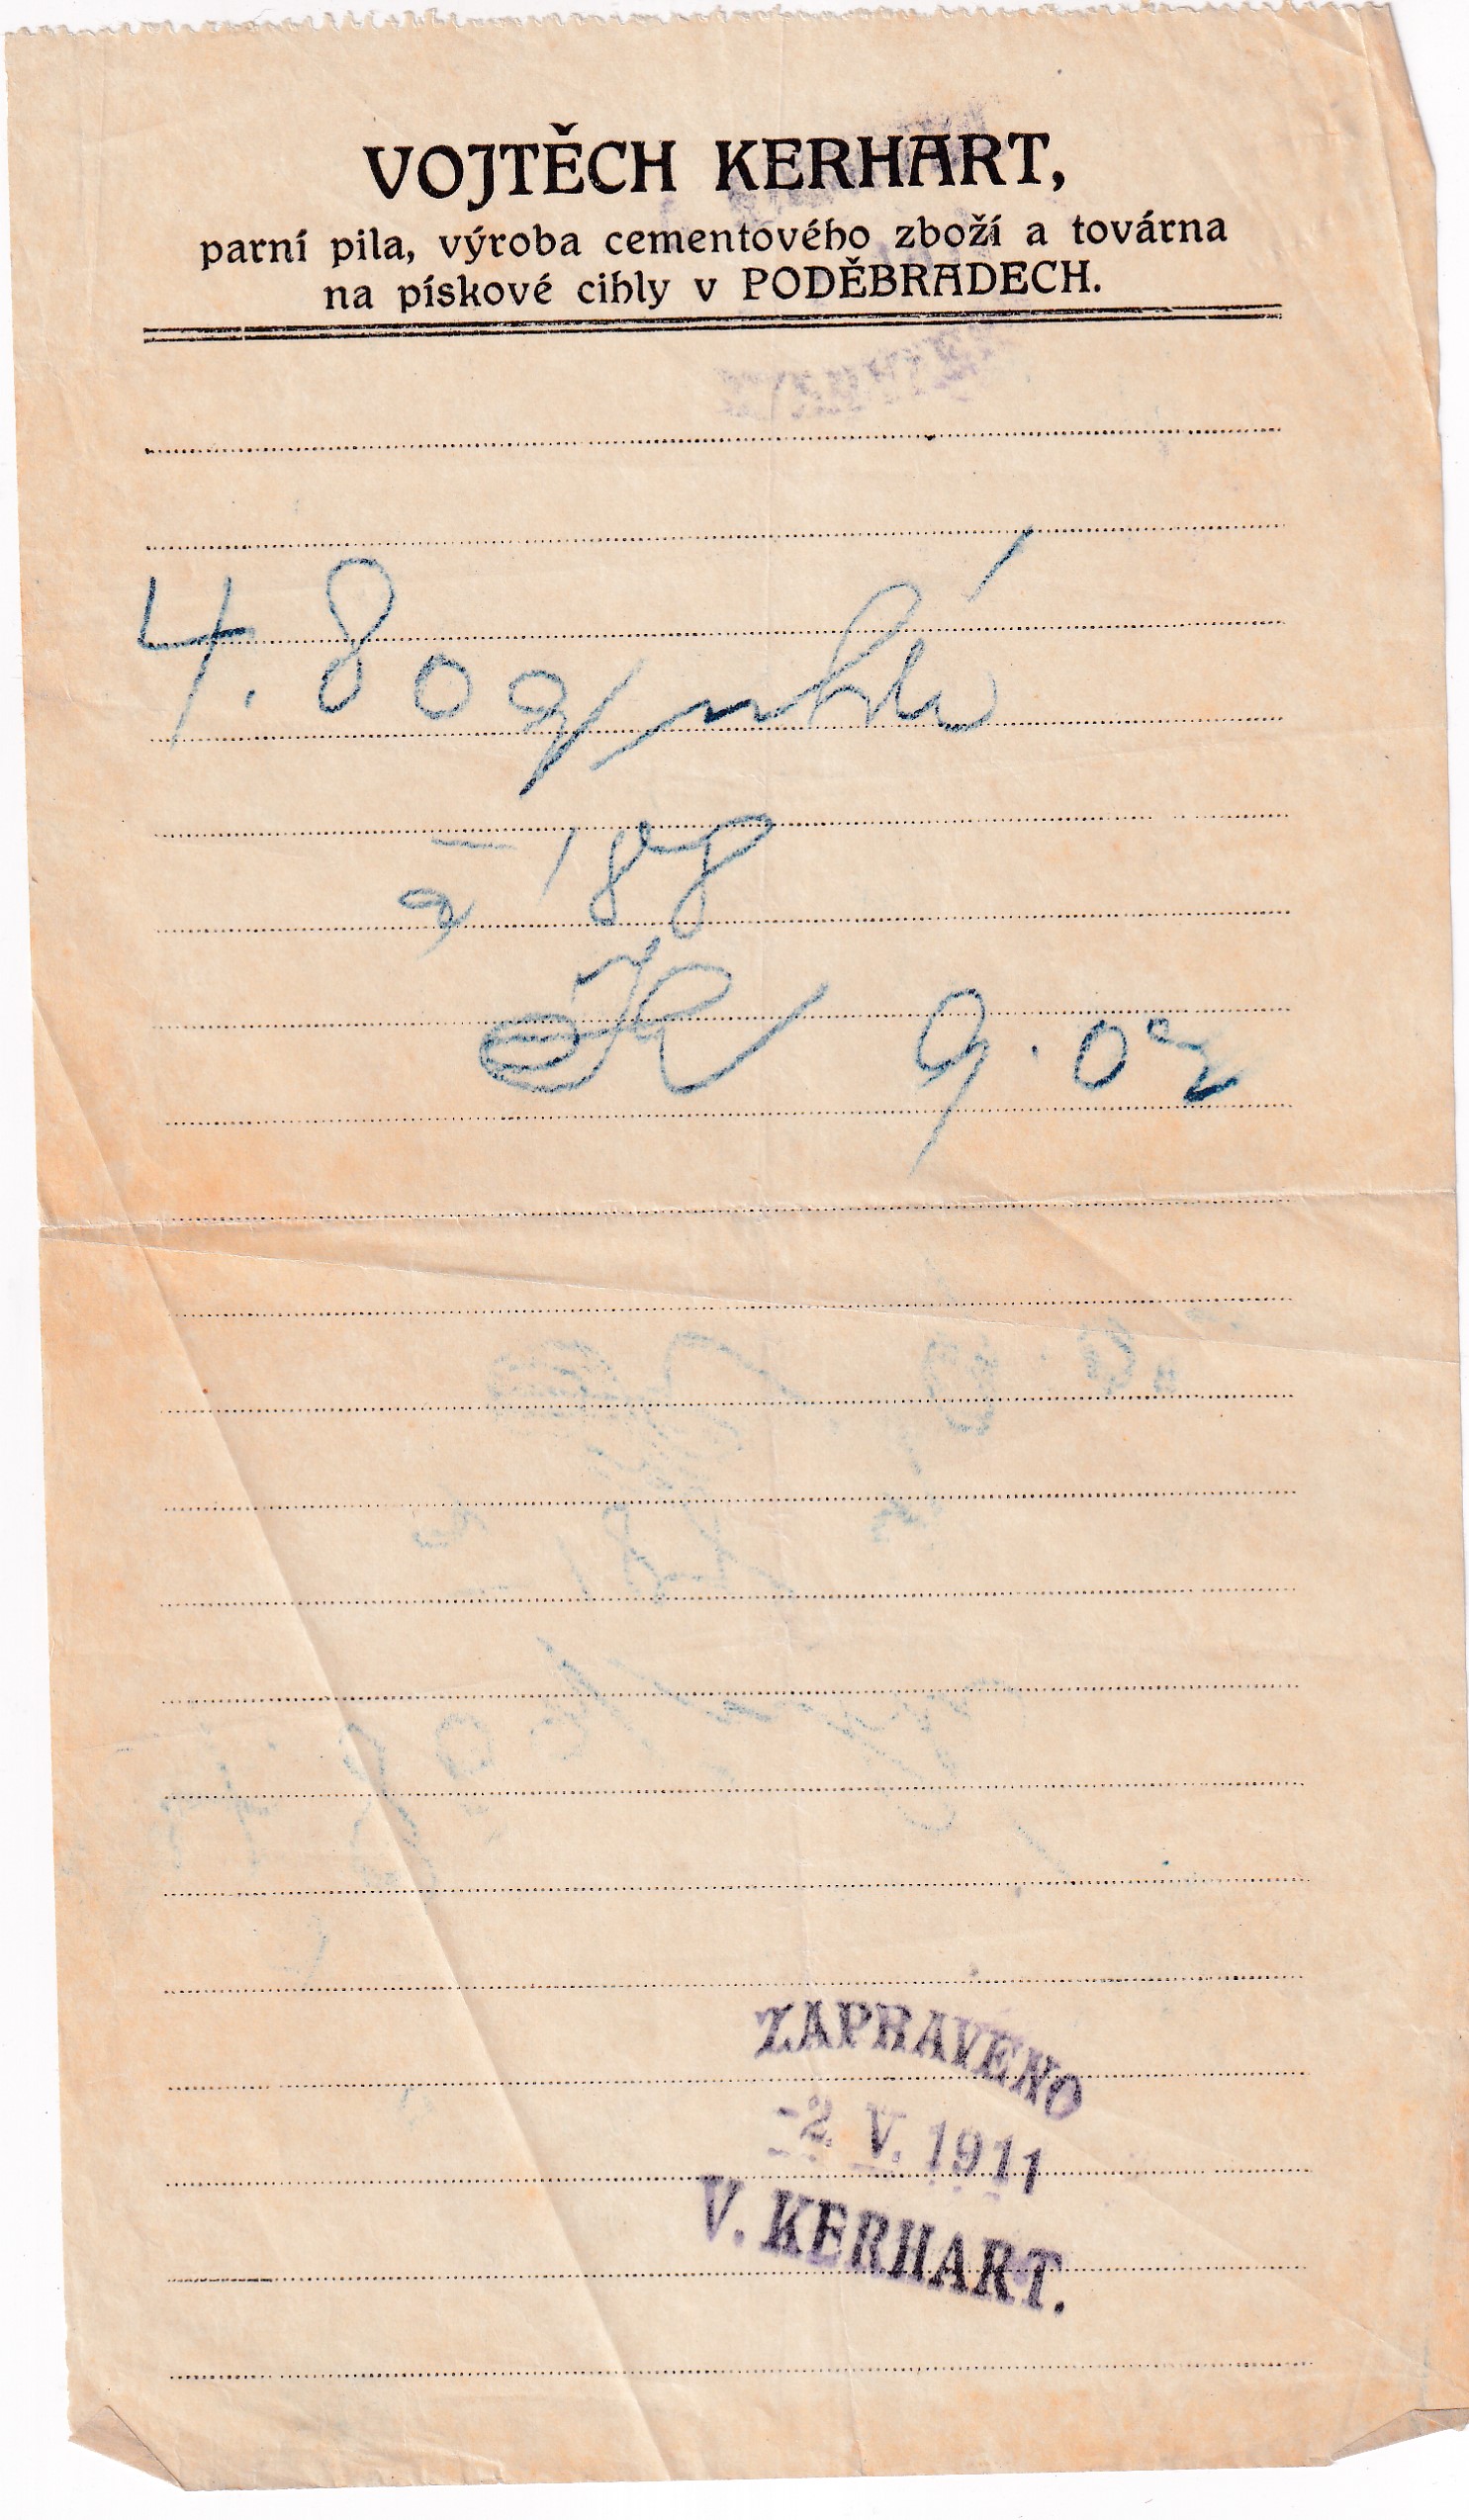 VOJTĚCH KERHART,
parní pila, výroba cementového zboží a továrna
na pískové cihly v PODĚBRADECH.
4.80 q
à 188
K 9.02
ZAPRAVENO
-2 V. 1911
V. KERHART.